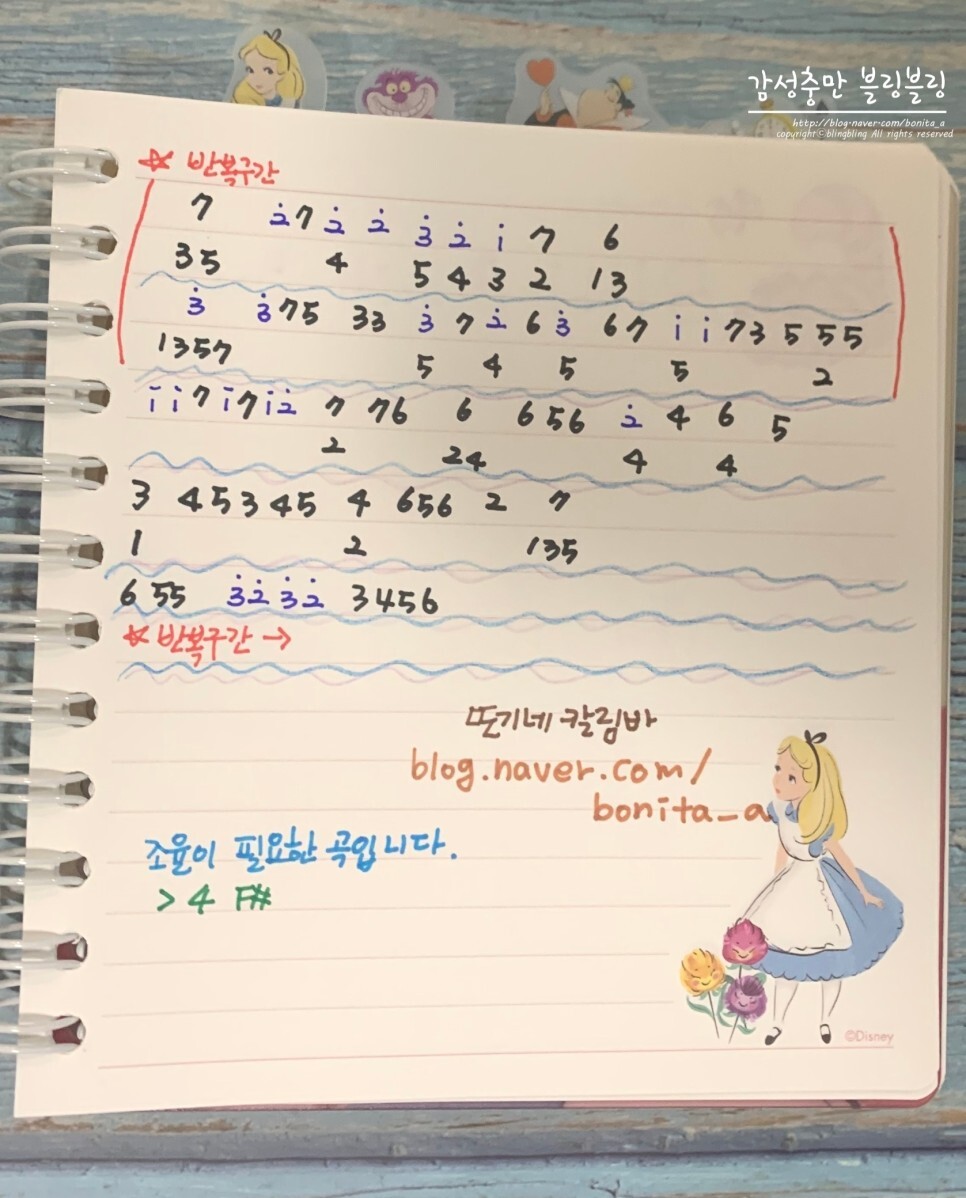 감성충만 블링블링
http://blog.naver.com/bonita_a
copyright©blingbling All rights reserved
☆ 반복구간
7 2̇7 2̇ 2̇ 3̇ 2̇ 1̇ 7 6
35 4 5 4 3 2 13
3̇ 3̇75 33 3̇ 7 2̇ 6 3̇ 67 1̇ 1̇ 73 5 55
1357 5 4 5 5 2
1̇ 1̇ 7 1̇ 7 1̇ 2̇ 7 76 6 6 56 2̇ 4 6 5
2 24 4 4
3 45345 4 656 2 7
1 2 135
6 55 3̇2̇3̇2̇ 3456
☆ 반복구간 →
뜬기네 칼림바
blog.naver.com/
bonita_a
조율이 필요한 곡입니다.
> 4 F#
©Disney